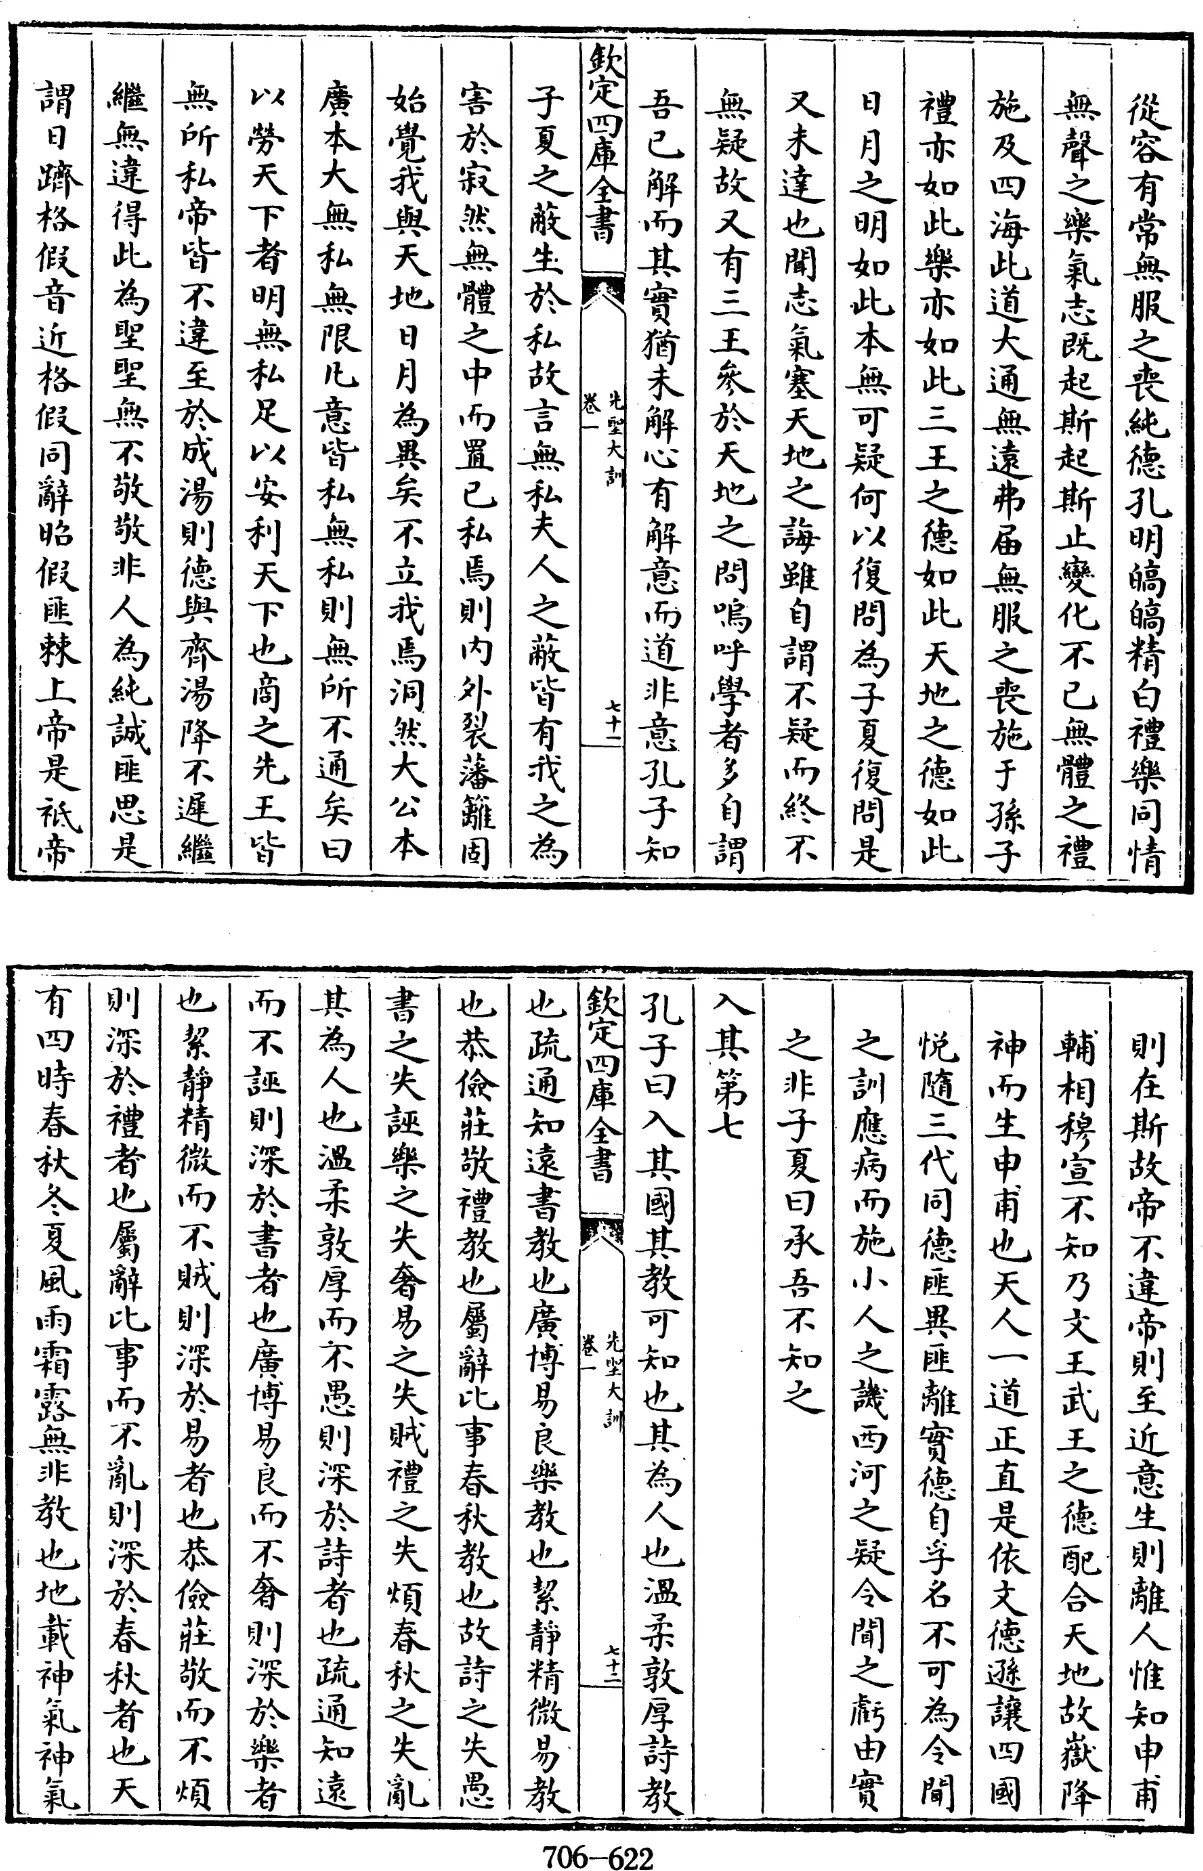 從容有常無服之喪純德孔明皜皜精白禮樂同情
無聲之樂氣志既起斯起斯止變化不已無體之禮
施及四海此道大通無遠弗届無服之喪施于孫子
禮亦如此樂亦如此三王之德如此天地之德如此
日月之明如此本無可疑何以復問為子夏復問是
又未達也聞志氣塞天地之誨雖自謂不疑而終不
無疑故又有三王參於天地之問嗚呼學者多自謂
吾已解而其實猶未解心有解意而道非意孔子知
欽定四庫全書
先聖大訓
卷一
七十一
子夏之蔽生於私故言無私夫人之蔽皆有我之為
害於寂然無體之中而置已私焉則内外裂藩籬固
始覺我與天地日月為異矣不立我焉洞然大公本
廣本大無私無限凡意皆私無私則無所不通矣曰
以勞天下者明無私足以安利天下也商之先王皆
無所私帝皆不違至於成湯則德與齊湯降不遲繼
繼無違得此為聖聖無不敬敬非人為純誠匪思是
謂日躋格假音近格假同辭昭假匪棘上帝是祇帝
則在斯故帝不違帝則至近意生則離人惟知申甫
輔相穆宣不知乃文王武王之德配合天地故嶽降
神而生申甫也天人一道正直是依文德遜讓四國
悦隨三代同德匪異匪離實德自孚名不可為令聞
之訓應病而施小人之譏西河之疑令聞之虧由實
之非子夏曰承吾不知之
入其第七
孔子曰入其國其教可知也其為人也溫柔敦厚詩教
欽定四庫全書
先聖大訓
卷一
七十二
也疏通知遠書教也廣博易良樂教也絜靜精微易教
也恭儉莊敬禮教也屬辭比事春秋教也故詩之失愚
書之失誣樂之失奢易之失賊禮之失煩春秋之失亂
其為人也溫柔敦厚而不愚則深於詩者也疏通知遠
而不誣則深於書者也廣博易良而不奢則深於樂者
也絜靜精微而不賊則深於易者也恭儉莊敬而不煩
則深於禮者也屬辭比事而不亂則深於春秋者也天
有四時春秋冬夏風雨霜露無非教也地載神氣神氣
706-622